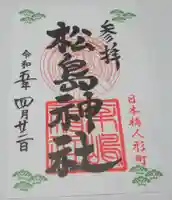 参拝
日本橋人形町
松島神社
令和五年
四月廿二日